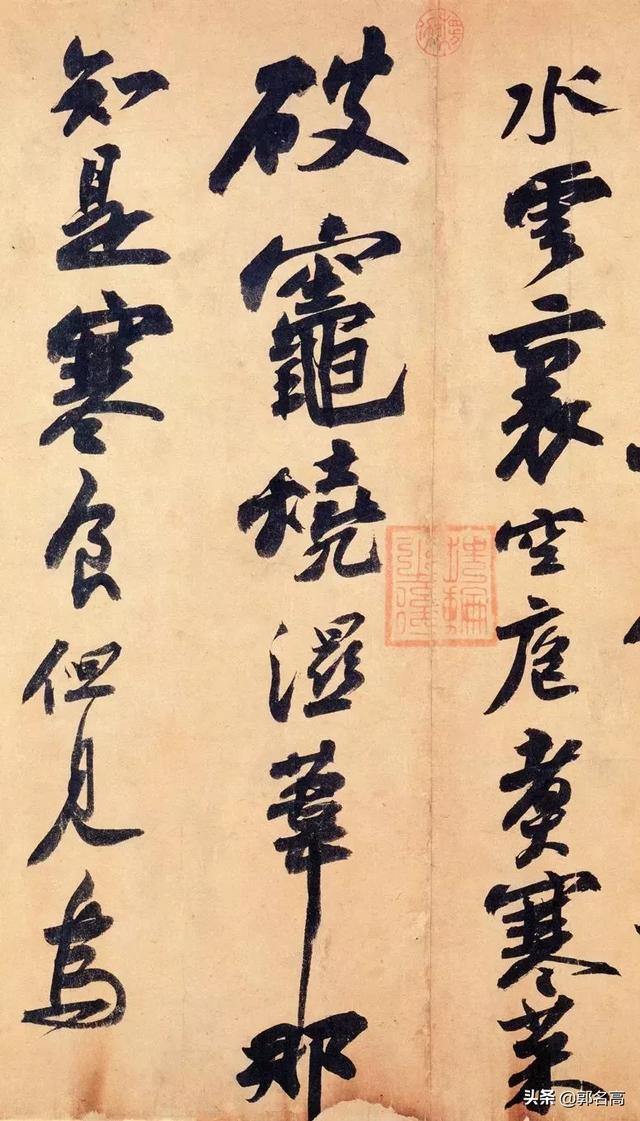 水雲裏空庖煑寒菜
破竈燒濕葦那
知是寒食但見烏
头条 @郭名高